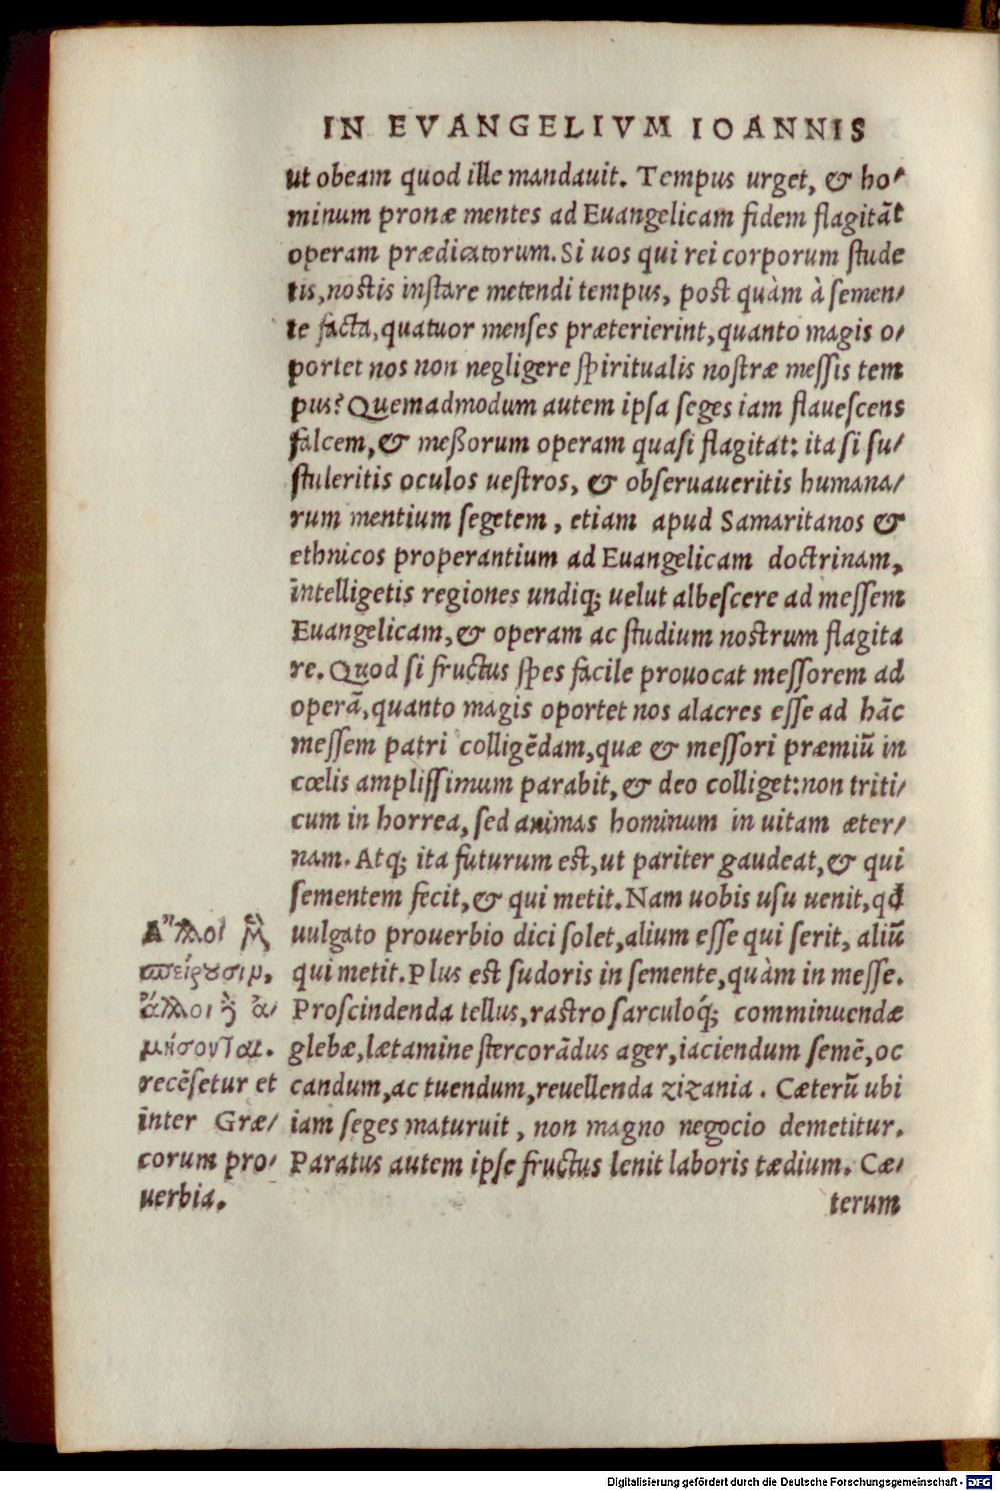 IN EVANGELIVM IOANNIS
ut obeam quod ille mandauit. Tempus urget, & ho-
minum pronæ mentes ad Euangelicam fidem flagitāt
operam prædicatorum. Si uos qui rei corporum stude
tis, nostis instare metendi tempus, post quàm à semen-
te facta, quatuor menses præterierint, quanto magis o-
portet nos non negligere spiritualis nostræ messis tem
pus? Quemadmodum autem ipsa seges iam flauescens
falcem, & meßorum operam quasi flagitat: ita si su-
stuleritis oculos uestros, & obseruaueritis humana-
rum mentium segetem, etiam apud Samaritanos &
ethnicos properantium ad Euangelicam doctrinam,
intelligetis regiones undiq; uelut albescere ad messem
Euangelicam, & operam ac studium nostrum flagita
re. Quod si fructus spes facile prouocat messorem ad
operā, quanto magis oportet nos alacres esse ad hāc
messem patri colligēdam, quæ & messori præmiū in
cœlis amplissimum parabit, & deo colliget: non triti-
cum in horrea, sed animas hominum in uitam æter-
nam. Atq; ita futurum est, ut pariter gaudeat, & qui
sementem fecit, & qui metit. Nam uobis usu uenit, qd
uulgato prouerbio dici solet, alium esse qui serit, aliū
qui metit. Plus est sudoris in semente, quàm in messe.
Proscindenda tellus, rastro sarculoq́; comminuendæ
glebæ, lætamine stercorādus ager, iaciendum semē, oc
candum, ac tuendum, reuellenda zizania. Cæterū ubi
iam seges maturuit, non magno negocio demetitur.
Paratus autem ipse fructus lenit laboris tædium. Cæ-
terum
Ἄλλοι μὲν
σπείρουσιν,
ἄλλοι δὲ ἀ-
μήσονται.
recēsetur et
inter Græ-
corum pro-
uerbia.
Digitalisierung gefördert durch die Deutsche Forschungsgemeinschaft - DFG